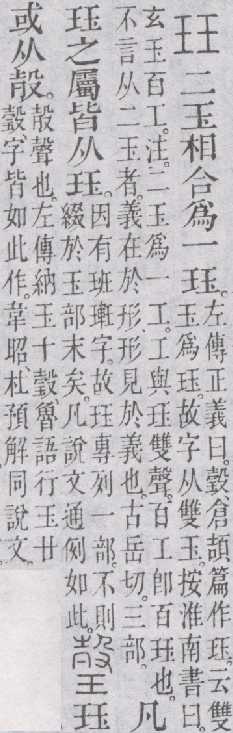 玨 二玉相合爲一玨。
左傳正義曰。瑴、倉頡篇作玨。云雙
玉爲玨。故字从雙玉。按淮南書曰。
玄玉百工。注。二玉爲一工。工與玨雙聲。百工卽百玨也。
不言从二玉者。義在於形。形見於義也。古岳切。三部。
凡
玨之屬皆从玨。
因有班𤩴字。故玨專列一部。不則
綴於玉部末矣。凡說文通例如此。
瑴玨
或从㱿。
㱿聲也。左傳納玉十瑴魯語行玉廿
瑴。字皆如此作。韋昭、杜預解同說文。